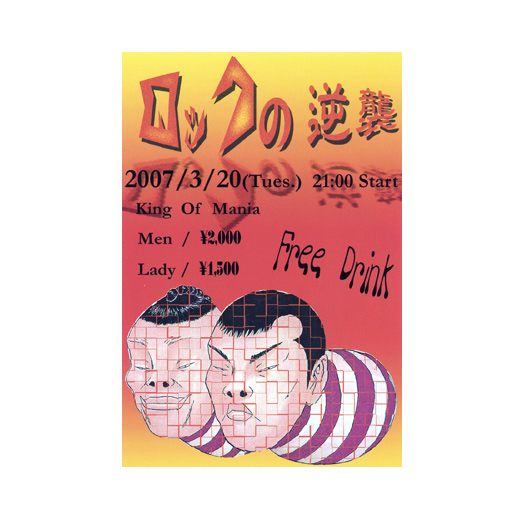 ロックの逆襲
2007/3/20(Tues.) 21:00 Start
King Of Mania
Men / ¥2,000
Lady / ¥1,500
Free Drink